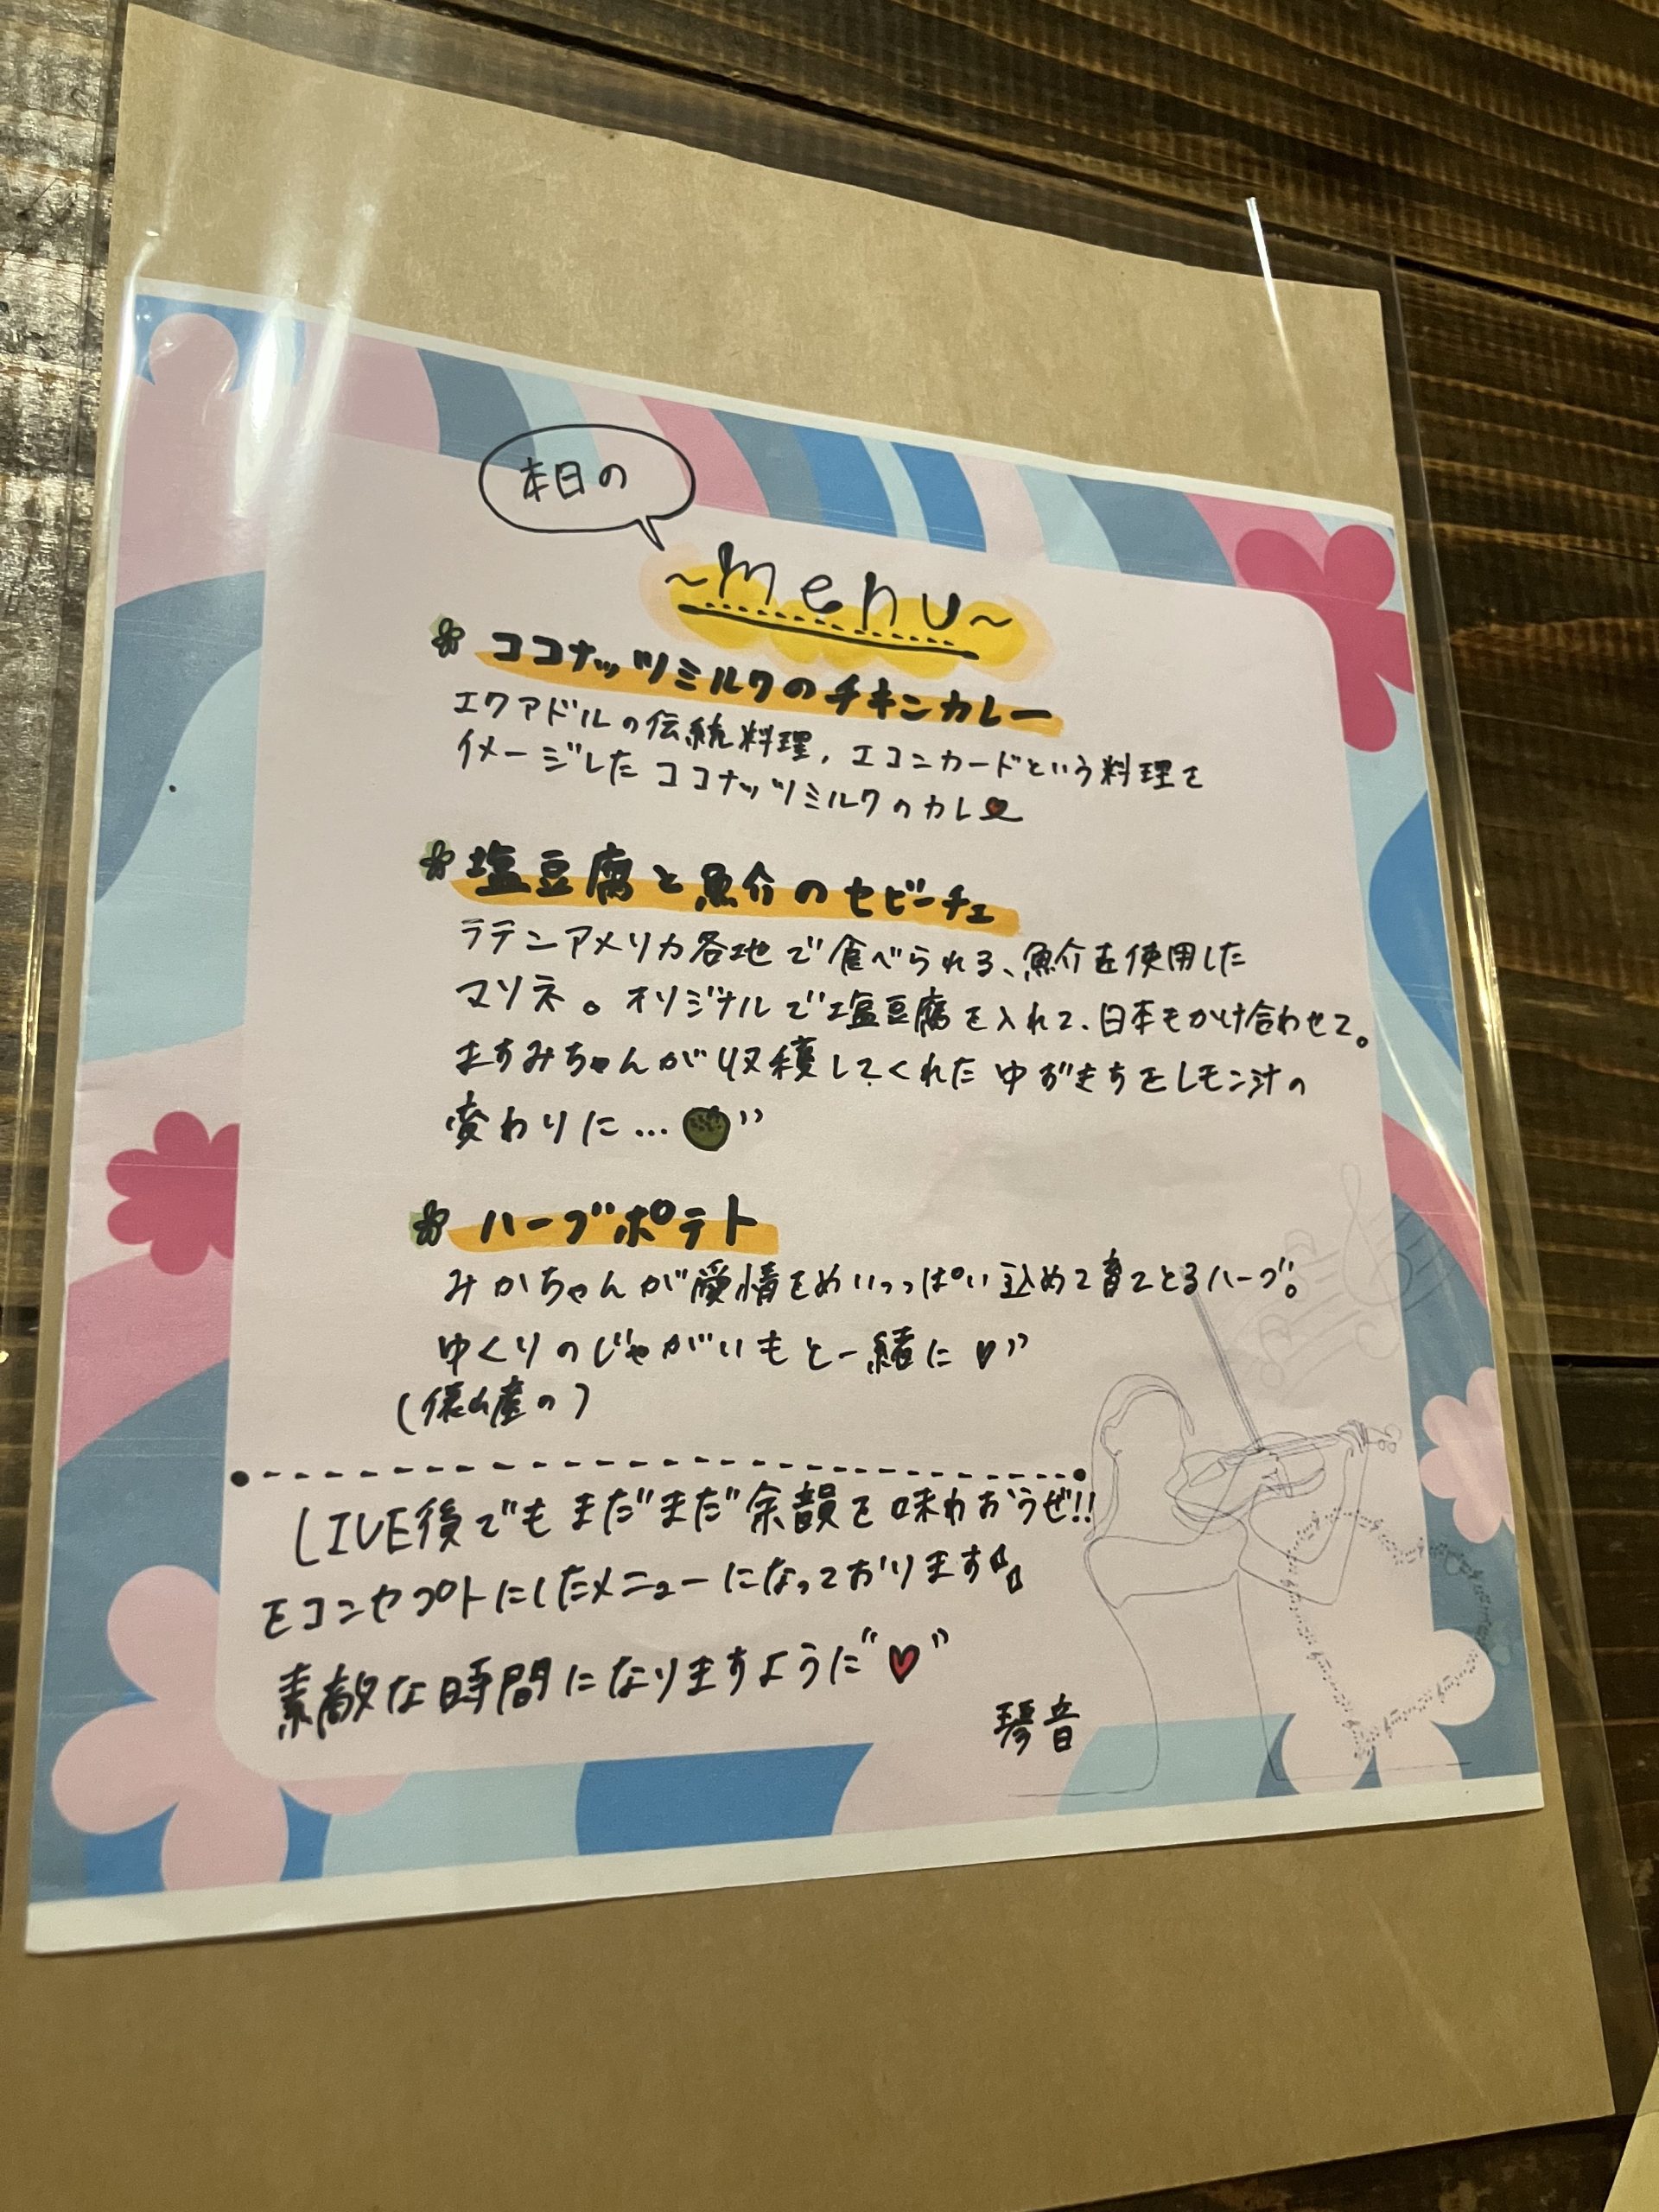 本日の
~menu~
ココナッツミルクのチキンカレー
エクアドルの伝統料理、エコンカードという料理を
イメージしたココナッツミルクのカレー
塩豆腐と魚介のセビーチェ
ラテンアメリカ各地で食べられる、魚介を使用した
マリネ。オリジナルで塩豆腐を入れて、日本もかけ合わせて。
ますみちゃんが収穫してくれたゆずきちをレモン汁の
変わりに...
ハーブポテト
みかちゃんが愛情をめいっっぱい込めて育てとるハーブ。
ゆくりのじゃがいもと一緒に♡
(俵山産の)
LIVE後でもまだまだ余韻を味わおうぜ!!
をコンセプトにしたメニューになっております
素敵な時間になりますように♥
琴音